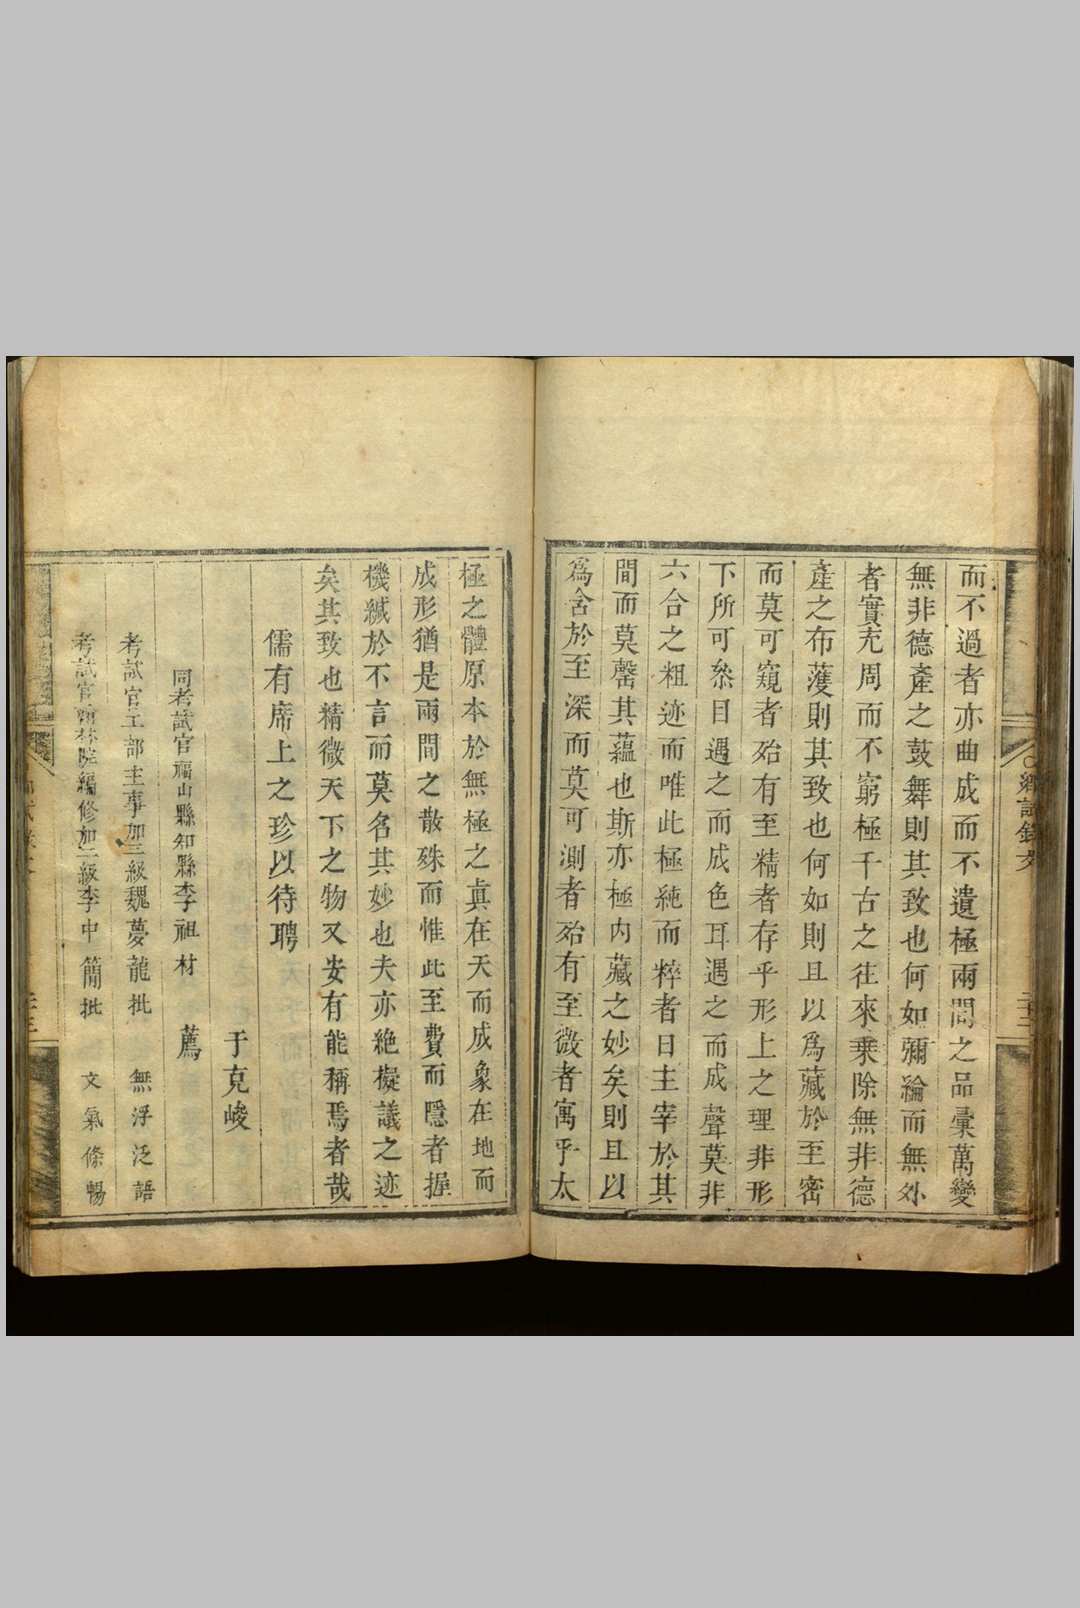 鄉試錄文
二十二
而不過者亦曲成而不遺極兩間之品彙萬變
無非德產之鼓舞則其致也何如彌綸而無外
者實充周而不窮極千古之往來乗除無非德
產之布濩則其致也何如則且以爲藏於至密
而莫可窺者殆有至精者存乎形上之理非形
下所可叅目遇之而成色耳遇之而成聲莫非
六合之粗迹而唯此極純而粹者日主宰於其
間而莫罄其蘊也斯亦極內藏之妙矣則且以
爲舍於至深而莫可測者殆有至微者寓乎太
極之體原本於無極之眞在天而成象在地而
成形猶是兩間之散殊而惟此至費而隱者握
機緘於不言而莫名其妙也夫亦絶擬議之迹
矣其致也精微天下之物又安有能稱焉者哉
儒有席上之珍以待聘
于克峻
同考試官福山縣知縣李祖材 薦
考試官工部主事加三級魏夢龍批 無浮泛語
考試官翰林院編修加二級李中簡批 文氣條暢